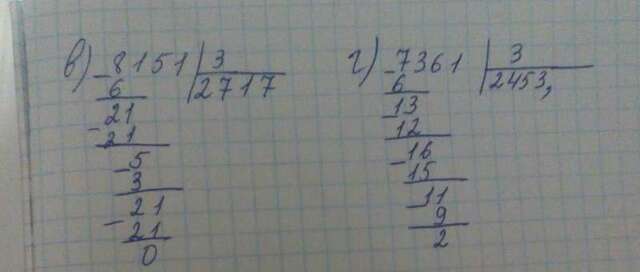 в) -8151 | 3
6 | 2717
-21
21
-5
3
-21
21
0
г) -7361 | 3
6 | 2453,
-13
12
-16
15
-11
9
2